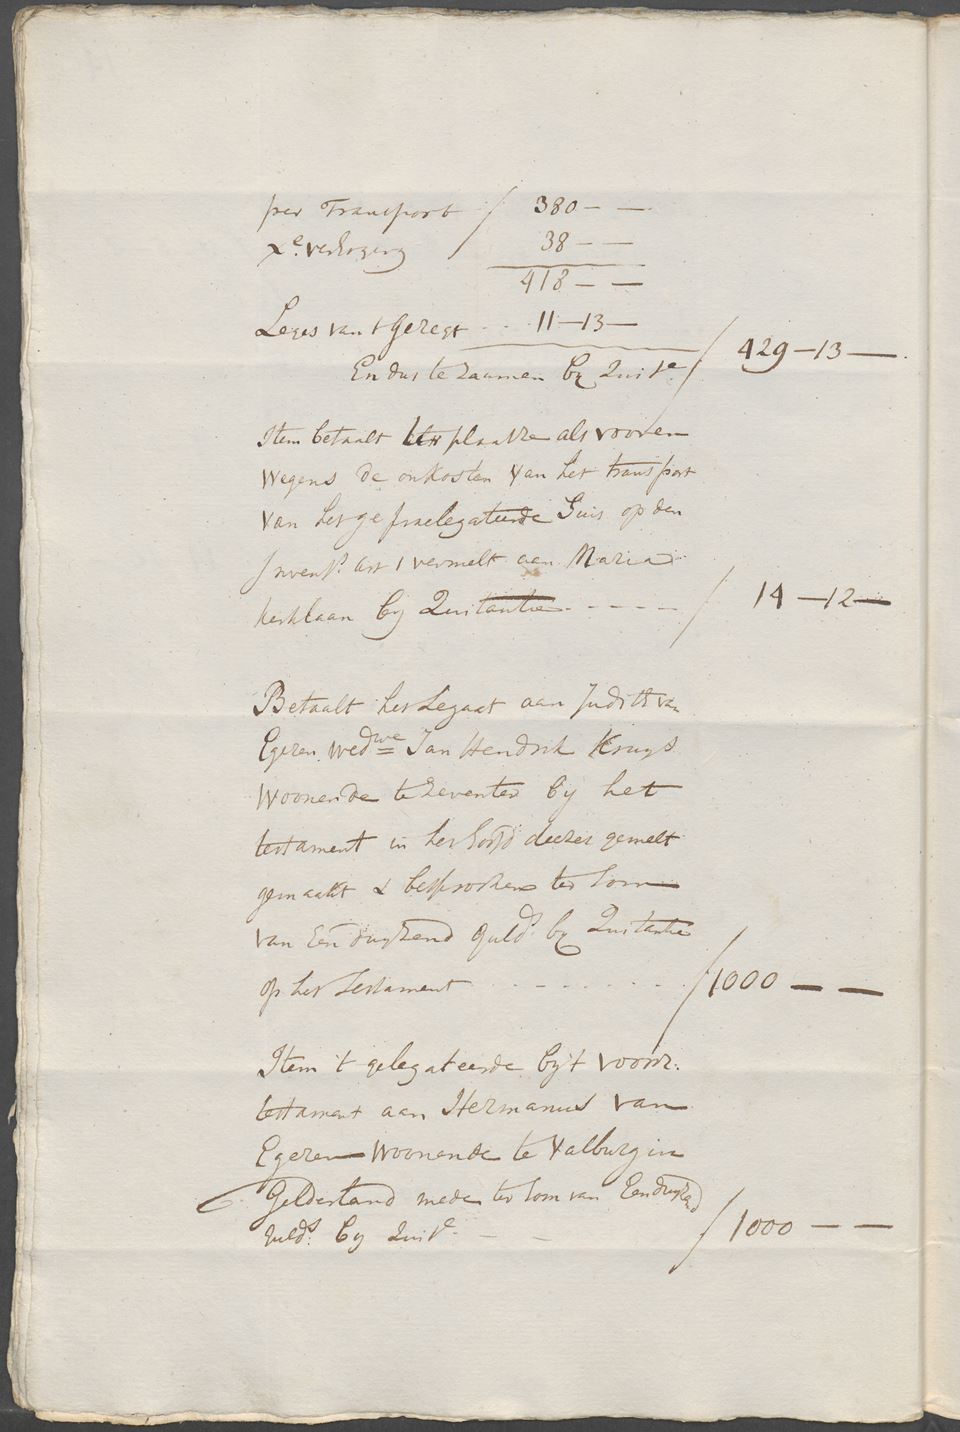 per Transport / 380 – —
Xe. verhoging 38 – —
418 – —
Leges van 't Geregt . . 11 – 13 —
En dus te zaamen by Quite / 429 – 13 —
Item betaalt ter plaatze als vooren
wegens de onkosten van het transport
van het gepraelegateerde Huis op den
Invents. art 1 vermelt aan Maria
kerklaan by Quitantie - - - - - / 14 – 12 —
Betaalt het Legaat aan Judith van
Egeren wedwe Jan Hendrik Kruys
woonende te Deventer by het
testament in het hoofd deezer gemelt
gemaakt & besprooken ter som
van Een duyzend Guld. by Quitantie
op het Testament - - - - - - - / 1000 — —
Item 't gelegateerde by 't voorz:
testament aan Hermanus van
Egeren woonende te Valburg in
Gelderland mede ter som van Een duyzend
Gulds. by Quite. – – / 1000 — —